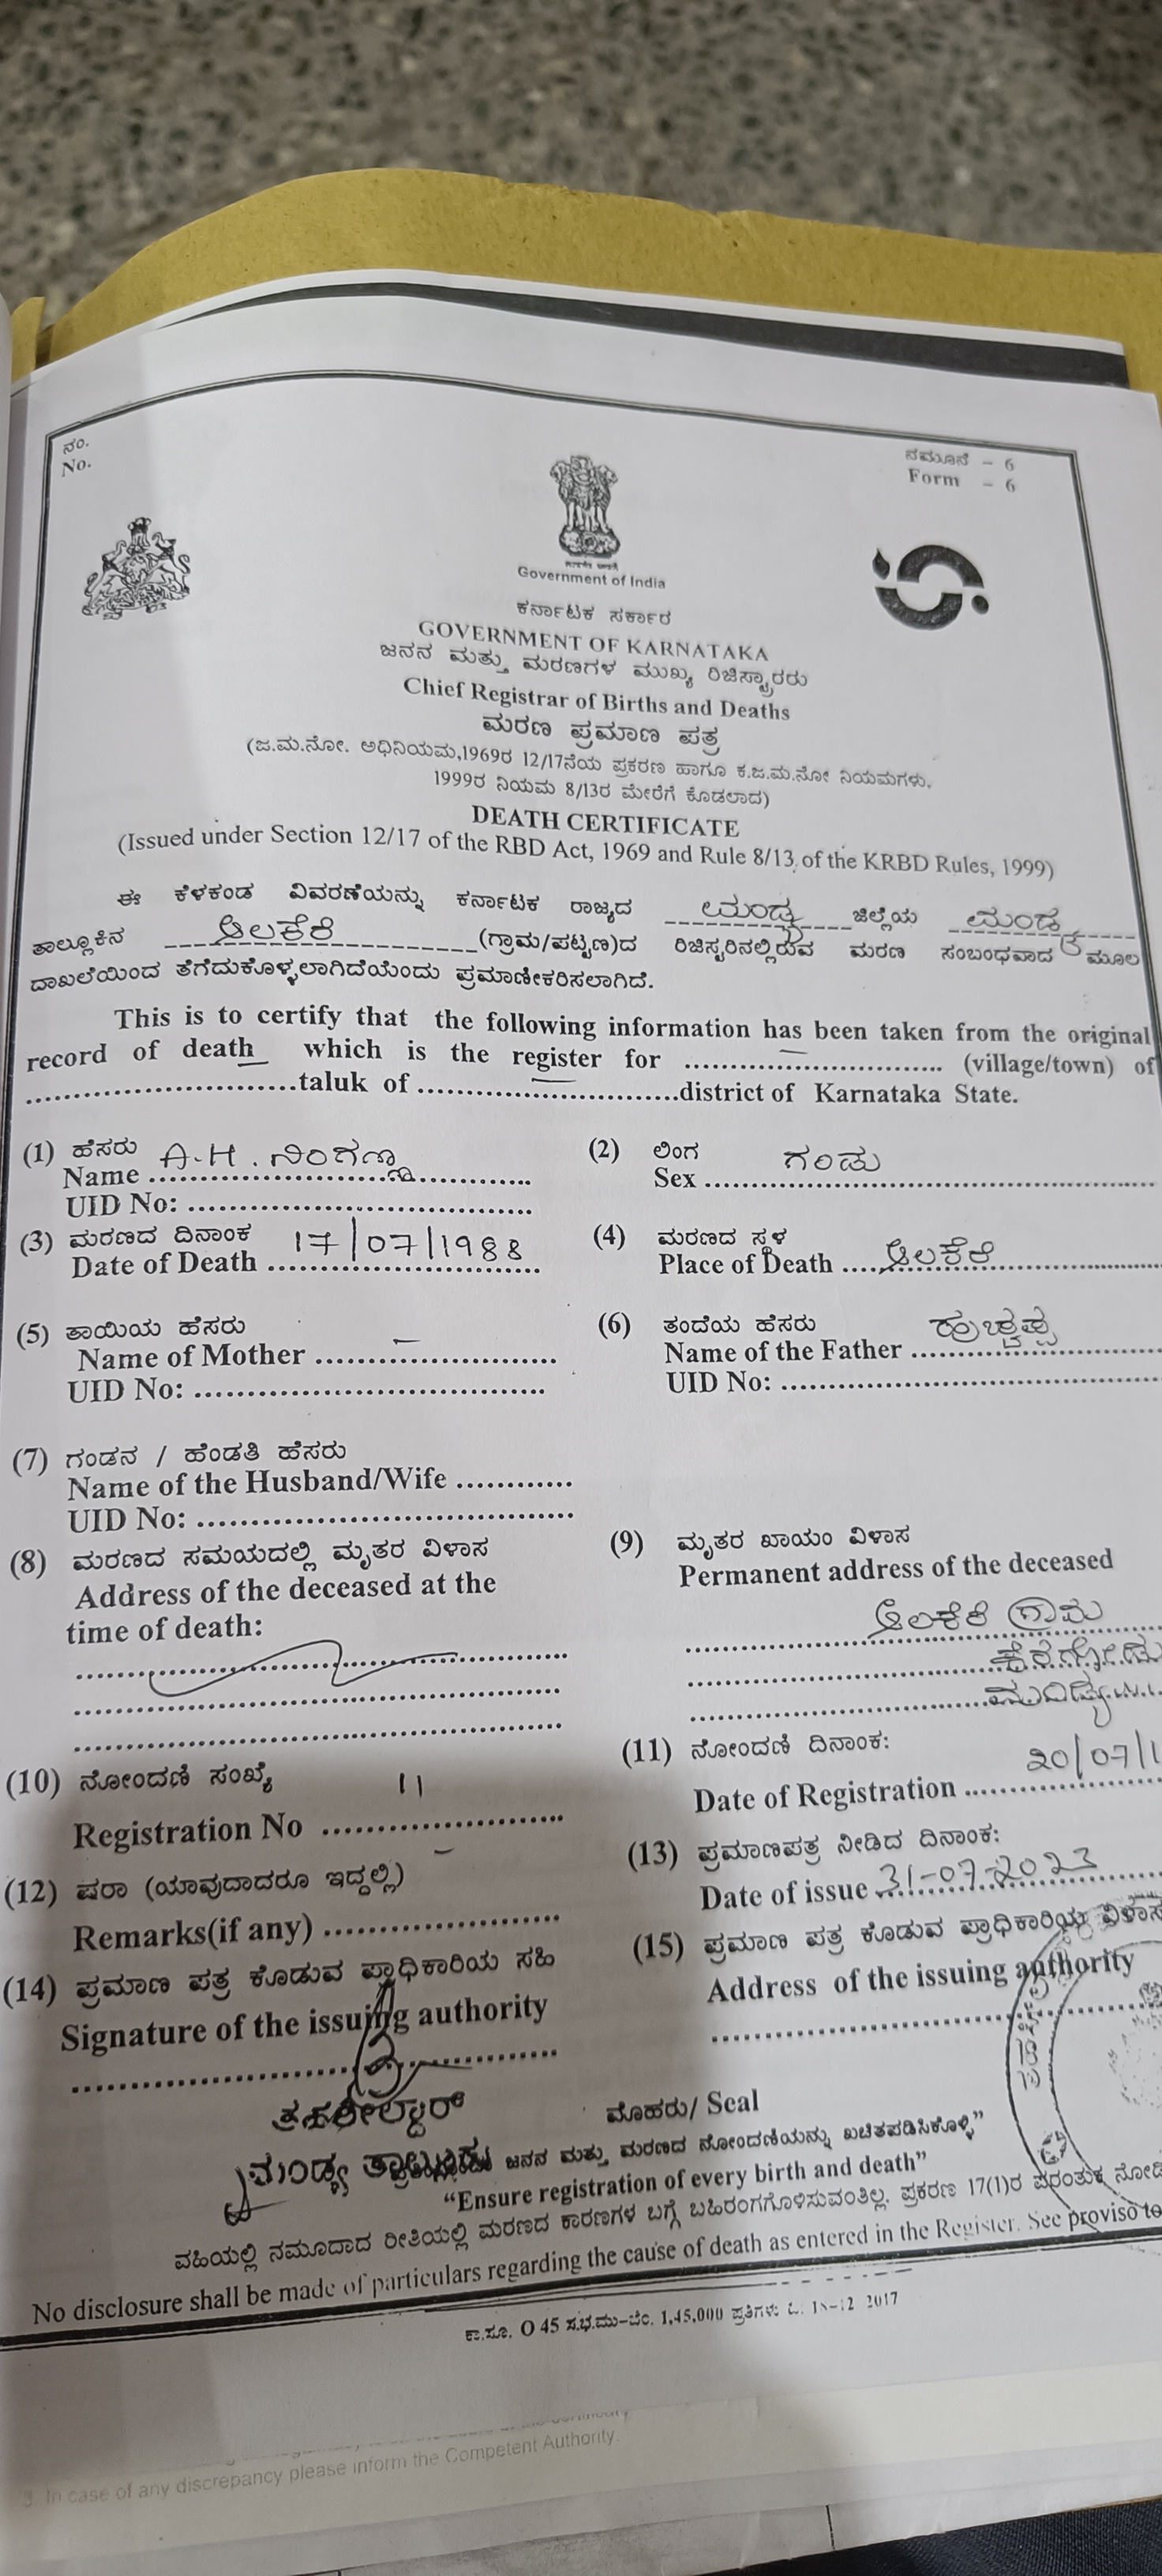 ನಂ.
No.
ನಮೂನೆ - 6
Form - 6
Government of India
ಕರ್ನಾಟಕ ಸರ್ಕಾರ
GOVERNMENT OF KARNATAKA
ಜನನ ಮತ್ತು ಮರಣಗಳ ಮುಖ್ಯ ರಿಜಿಸ್ಟ್ರಾರರು
Chief Registrar of Births and Deaths
ಮರಣ ಪ್ರಮಾಣ ಪತ್ರ
(ಜ.ಮ.ನೋ. ಅಧಿನಿಯಮ,1969ರ 12/17ನೆಯ ಪ್ರಕರಣ ಹಾಗೂ ಕ.ಜ.ಮ.ನೋ ನಿಯಮಗಳು,
1999ರ ನಿಯಮ 8/13ರ ಮೇರೆಗೆ ಕೊಡಲಾದ)
DEATH CERTIFICATE
(Issued under Section 12/17 of the RBD Act, 1969 and Rule 8/13 of the KRBD Rules, 1999)
ಈ ಕೆಳಕಂಡ ವಿವರಣೆಯನ್ನು ಕರ್ನಾಟಕ ರಾಜ್ಯದ ಮಂಡ್ಯ ಜಿಲ್ಲೆಯ ಮಂಡ್ಯ
ತಾಲ್ಲೂಕಿನ ಆಲಕೆರೆ (ಗ್ರಾಮ/ಪಟ್ಟಣ)ದ ರಿಜಿಸ್ಟರಿನಲ್ಲಿರುವ ಮರಣ ಸಂಬಂಧವಾದ ಮೂಲ
ದಾಖಲೆಯಿಂದ ತೆಗೆದುಕೊಳ್ಳಲಾಗಿದೆಯೆಂದು ಪ್ರಮಾಣೀಕರಿಸಲಾಗಿದೆ.
This is to certify that the following information has been taken from the original
record of death which is the register for .......................... (village/town) of
..........................taluk of ..........................district of Karnataka State.
(1) ಹೆಸರು A.H. ನಿಂಗಣ್ಣ
Name
UID No:
(2) ಲಿಂಗ ಗಂಡು
Sex
(3) ಮರಣದ ದಿನಾಂಕ 17/07/1988
Date of Death
(4) ಮರಣದ ಸ್ಥಳ
Place of Death ಆಲಕೆರೆ
(5) ತಾಯಿಯ ಹೆಸರು
Name of Mother –
UID No:
(6) ತಂದೆಯ ಹೆಸರು ಹುಚ್ಚಪ್ಪ
Name of the Father
UID No:
(7) ಗಂಡನ / ಹೆಂಡತಿ ಹೆಸರು
Name of the Husband/Wife
UID No:
(8) ಮರಣದ ಸಮಯದಲ್ಲಿ ಮೃತರ ವಿಳಾಸ
Address of the deceased at the
time of death:
(9) ಮೃತರ ಖಾಯಂ ವಿಳಾಸ
Permanent address of the deceased
ಆಲಕೆರೆ ಗ್ರಾಮ
(10) ನೋಂದಣಿ ಸಂಖ್ಯೆ 11
Registration No
(11) ನೋಂದಣಿ ದಿನಾಂಕ:
Date of Registration 20/07/1
(12) ಷರಾ (ಯಾವುದಾದರೂ ಇದ್ದಲ್ಲಿ) –
Remarks(if any)
(13) ಪ್ರಮಾಣಪತ್ರ ನೀಡಿದ ದಿನಾಂಕ:
Date of issue 31-07-2023
(14) ಪ್ರಮಾಣ ಪತ್ರ ಕೊಡುವ ಪ್ರಾಧಿಕಾರಿಯ ಸಹಿ
Signature of the issuing authority
(15) ಪ್ರಮಾಣ ಪತ್ರ ಕೊಡುವ ಪ್ರಾಧಿಕಾರಿಯ ವಿಳಾಸ
Address of the issuing authority
ತಹಶೀಲ್ದಾರ್
ಮೊಹರು/ Seal
ಮಂಡ್ಯ ತಾಲ್ಲೂಕು
ಜನನ ಮತ್ತು ಮರಣದ ನೋಂದಣಿಯನ್ನು ಖಚಿತಪಡಿಸಿಕೊಳ್ಳಿ"
"Ensure registration of every birth and death"
ವಹಿಯಲ್ಲಿ ನಮೂದಾದ ರೀತಿಯಲ್ಲಿ ಮರಣದ ಕಾರಣಗಳ ಬಗ್ಗೆ ಬಹಿರಂಗಗೊಳಿಸುವಂತಿಲ್ಲ. ಪ್ರಕರಣ 17(1)ರ ಪರಂತುಕ ನೋಡಿ
No disclosure shall be made of particulars regarding the cause of death as entered in the Register. See proviso to
ಕಾ.ಸೂ. O 45 ಸ.ಭ.ಮು-ಬೆಂ. 1,45,000 ಪ್ರತಿಗಳು 2017
3. In case of any discrepancy please inform the Competent Authority.